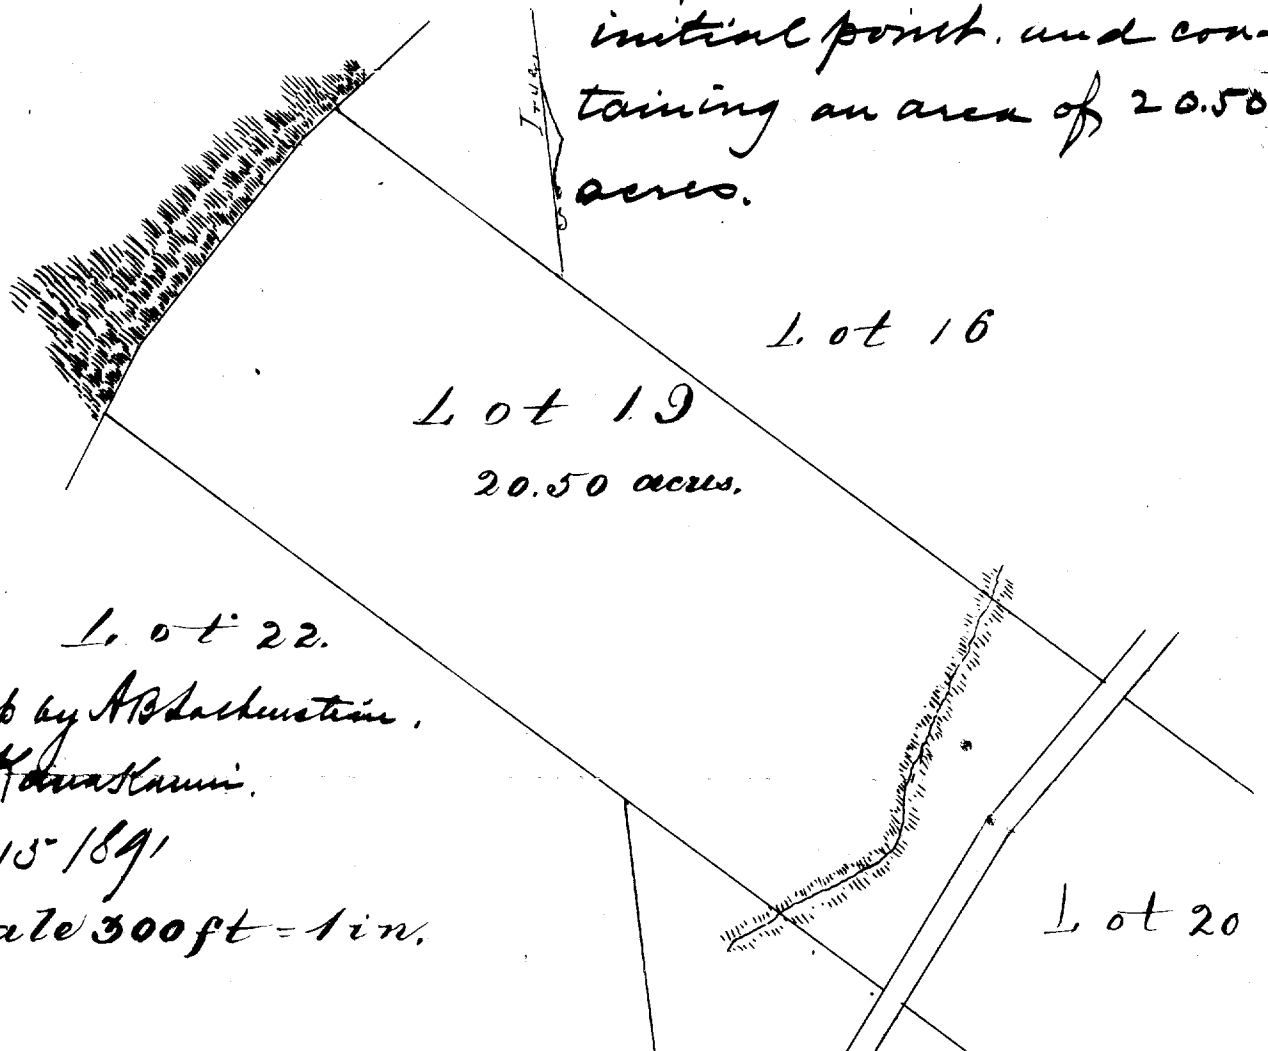 initial point. and con-
taining an area of 20.50
acres.
True
Lot 16
Lot 19
20.50 acres.
Lot 22.
by AB
15 1891
ale 300 ft = 1 in.
Lot 20